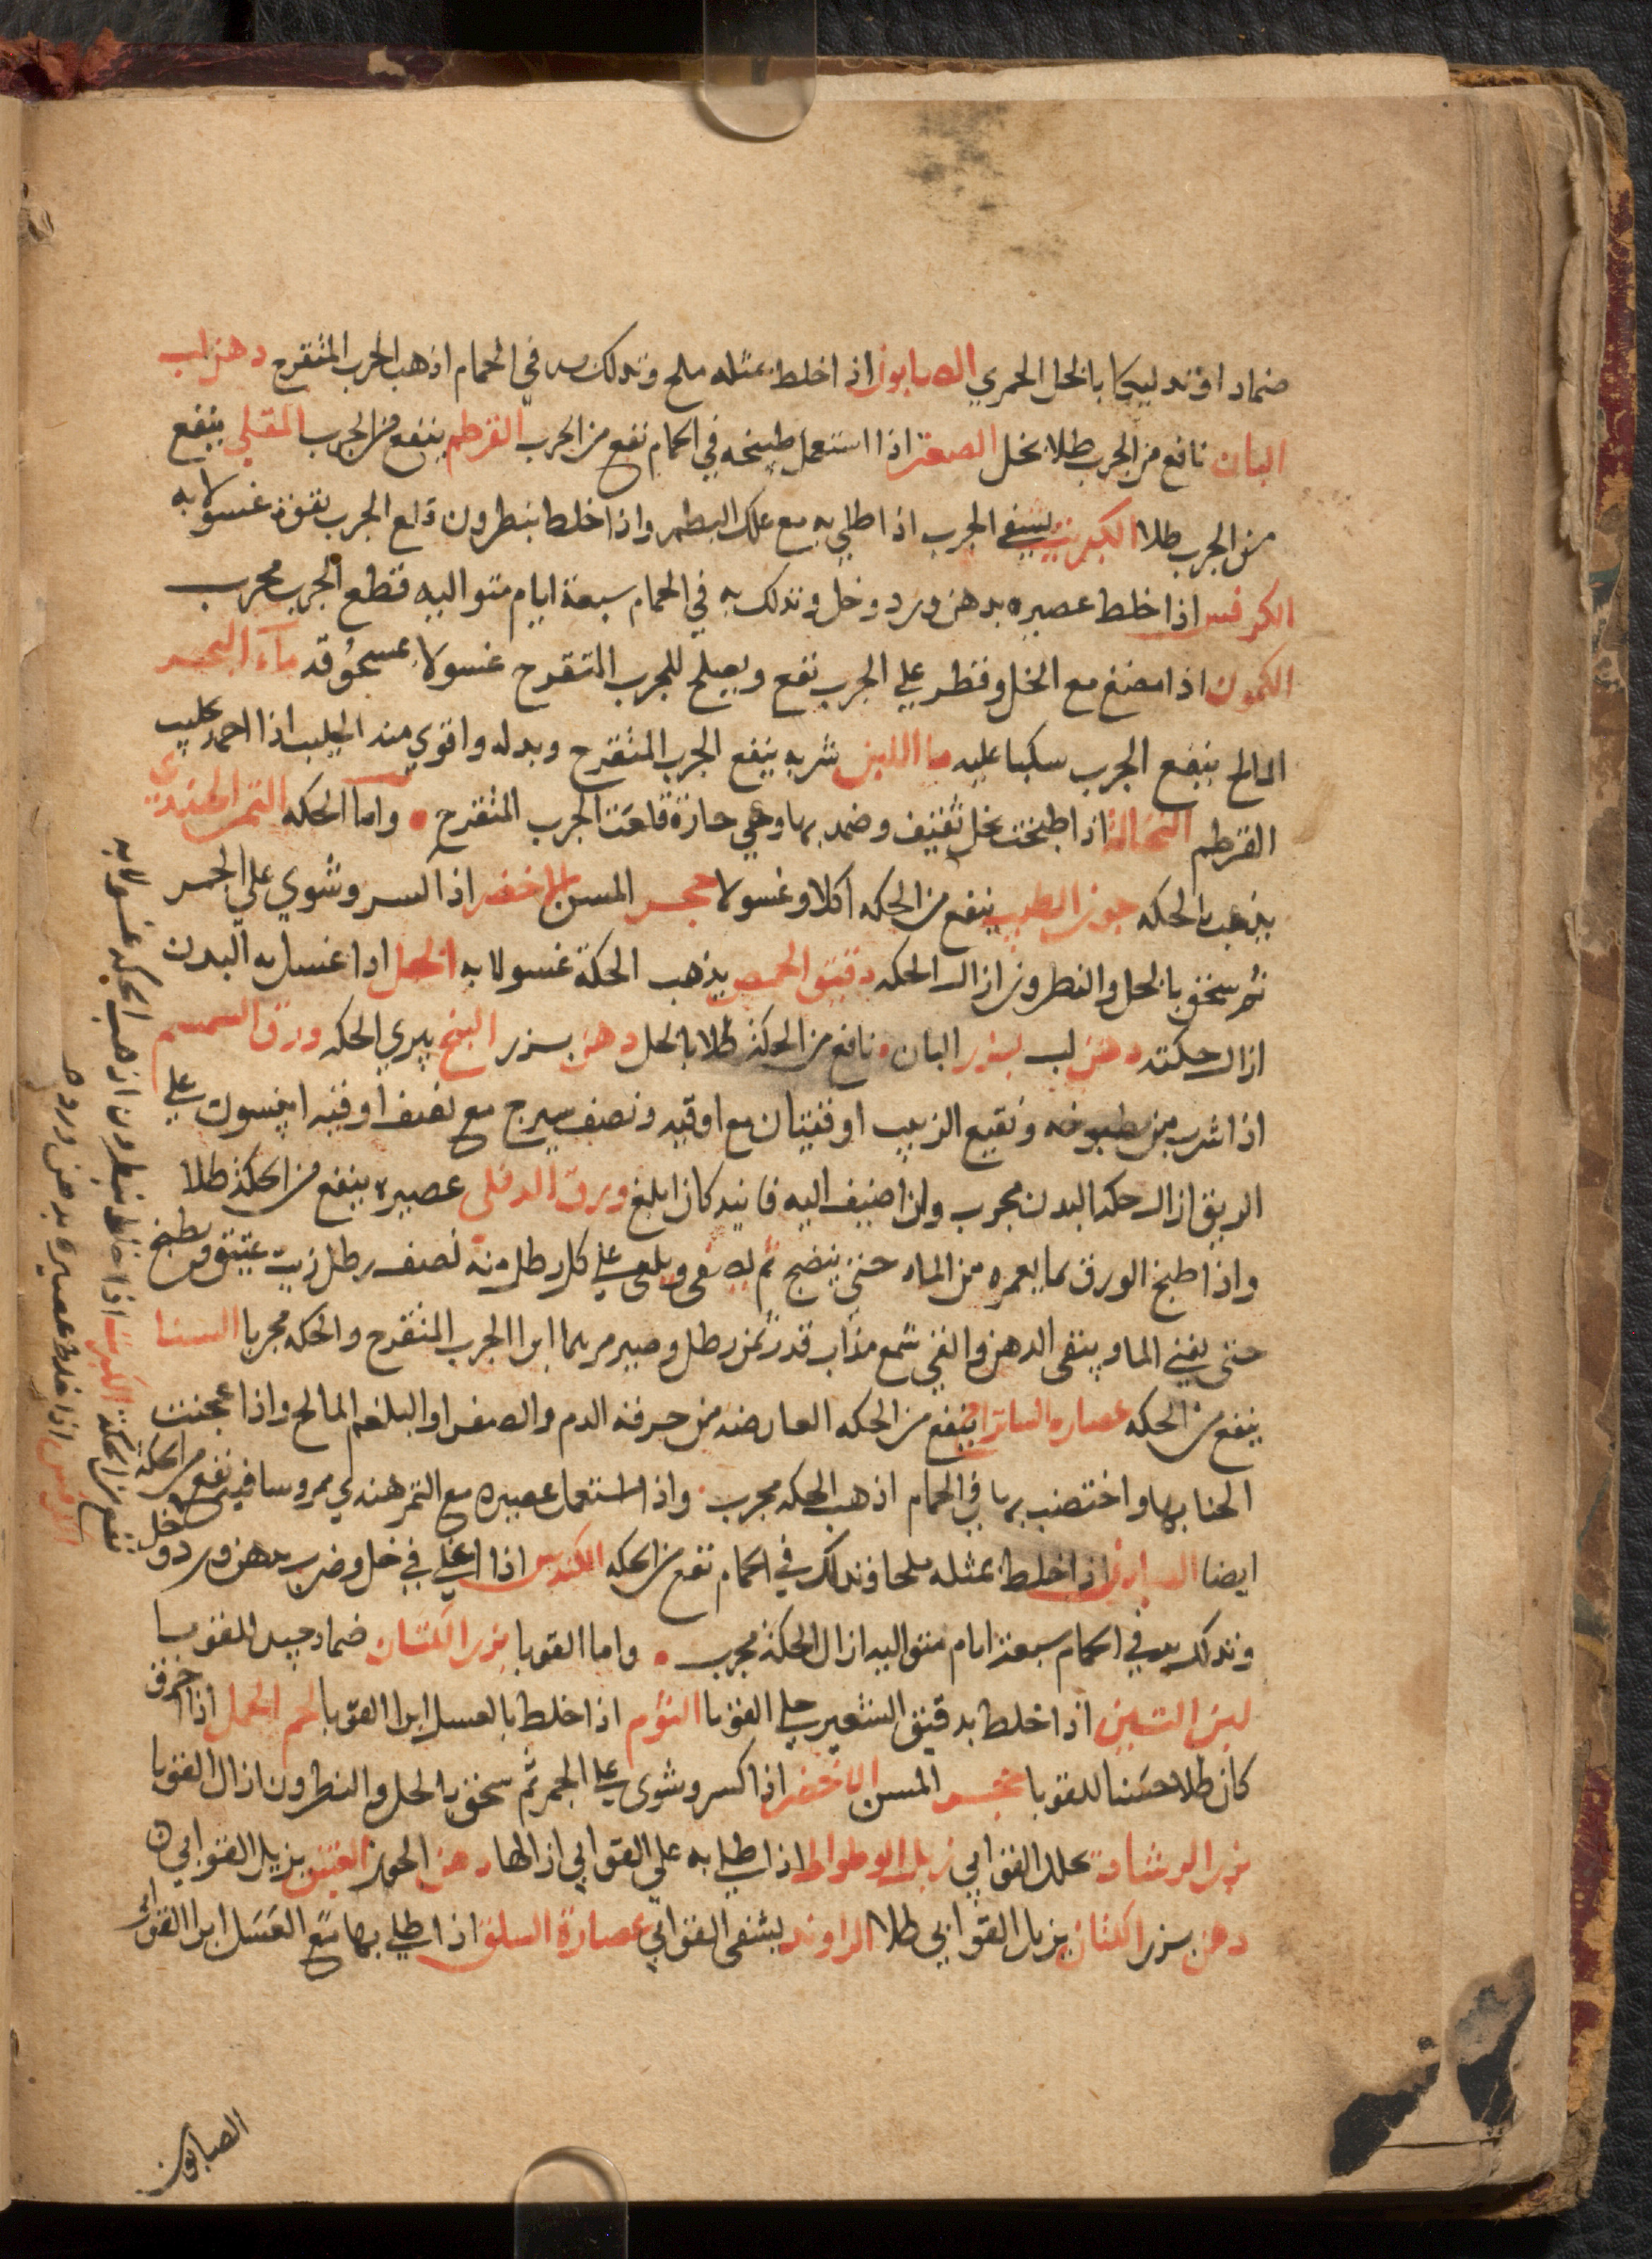 ضمادا وتدليكا بالخل الخمري الصابون اذا خلط بمثله ملح وتدلك به في الحمام اذهب الجرب المتقرح دهن لب
البان نافع من الجرب طلا بخل الصعتر اذا استعمل طبيخه في الحمام نفع من الجرب القرطم ينفع من الجرب المقلي ينفع
من الجرب طلا الكبريت يشفي الجرب اذا طلي به مع علك البطم واذا خلط بنطرون قلع الجرب بقوة غسولا به
الكرفس اذا خلط عصيره بدهن ورد وخل وتدلك به في الحمام سبعة ايام متواليه قطع الجرب مجرب
الكمون اذا مضغ مع الخل وقطر علي الجرب نفع ويصلح للجرب المتقرح غسولا بمسحوقه ماء البحر
المالح ينفع الجرب سكبا عليه ما اللبن شربه ينفع الجرب المتقرح وبدله واقوي منه الحليب اذا بحليب
القرطم النخالة اذا طبخت بخل ثقيف وضمد بها وهي حارة قلعت الجرب المتقرح واما الحكه التمر الهندي
يذهب بالحكه جوز الطيب ينفع من الحكه اكلا وغسولا حجر المسن الاخضر اذا كسر وشوي علي الجمر
ثم سحق بالخل والنطرون ازال الحكه دقيق الحمص يذهب الحكة غسولا به الخل اذا غسل به البدن
ازال حكته دهن لب بزر البان نافع من الحكة طلا بالخل دهن بزر البنج يبري الحكه ورق السمسم
اذا شرب من مطبوخه ونقيع الزبيب اوقيتان مع اوقيه ونصف سيرج مع نصف اوقيه افيسون علي
الريق ازال حكه البدن مجرب وان اضيف اليه فانيد كان ابلغ ورق الدفلي عصيره ينفع من الحكة طلا
واذا طبخ الورق بما يغمره من الماء حتي ينضج ثم يصفي ويلقي علي كل رطل منه نصف رطل زيت عتيق ويطبخ
حتي يفني الما ويبقي الدهن والقي شمع مذاب قدر ثمن رطل وصير مرهما ابرا الجرب المتقرح والحكه مجربا السنا
ينفع من الحكه عصاره الشاترج ينفع من الحكه العارضه من حرقة الدم والصفرا والبلغم المالح واذا عجنت
الحنا بها واختضب بها في الحمام اذهب الحكه مجرب واذا استعمل عصيره مع التمر هندي ممروسا فيه نفع من الحكة
ايضا الصابون اذا خلط بمثله ملحا وتدلك في الحمام نفع من الحكه الكندس اذا اغلي في خل وضرب بدهن ورد وخل
وتدلك به في الحمام سبعة ايام متواليه ازال الحكة مجرب واما القوبا بزر الكتان ضماد جيد للقوبا
لبن التين اذا خلط بدقيق الشعير جلي القوبا الثوم اذا خلط بالعسل ابرا القوبا لحم الجمل اذا احرق
كان طلا حسنا للقوبا حجر المسن الاخضر اذا كسر وشوي علي الجمر ثم سحق بالخل والنطرون ازال القوبا
بزر الرشاد يحلل القوابي زبل الوطواط اذا طلي به علي القوابي ازالها دهن الجوز العتيق يزيل القوابي
دهن بزر الكتان يزيل القوابي طلا الراوند يشفي القوابي عصارة السلق اذا طلي بها مع العسل ابرا القوابي
نفع من الحكة الكبريت اذا خلط بنطرون اذهب الحكه غسولا به
الكرفس اذا خلط عصيره بدهن ورد
الصابون